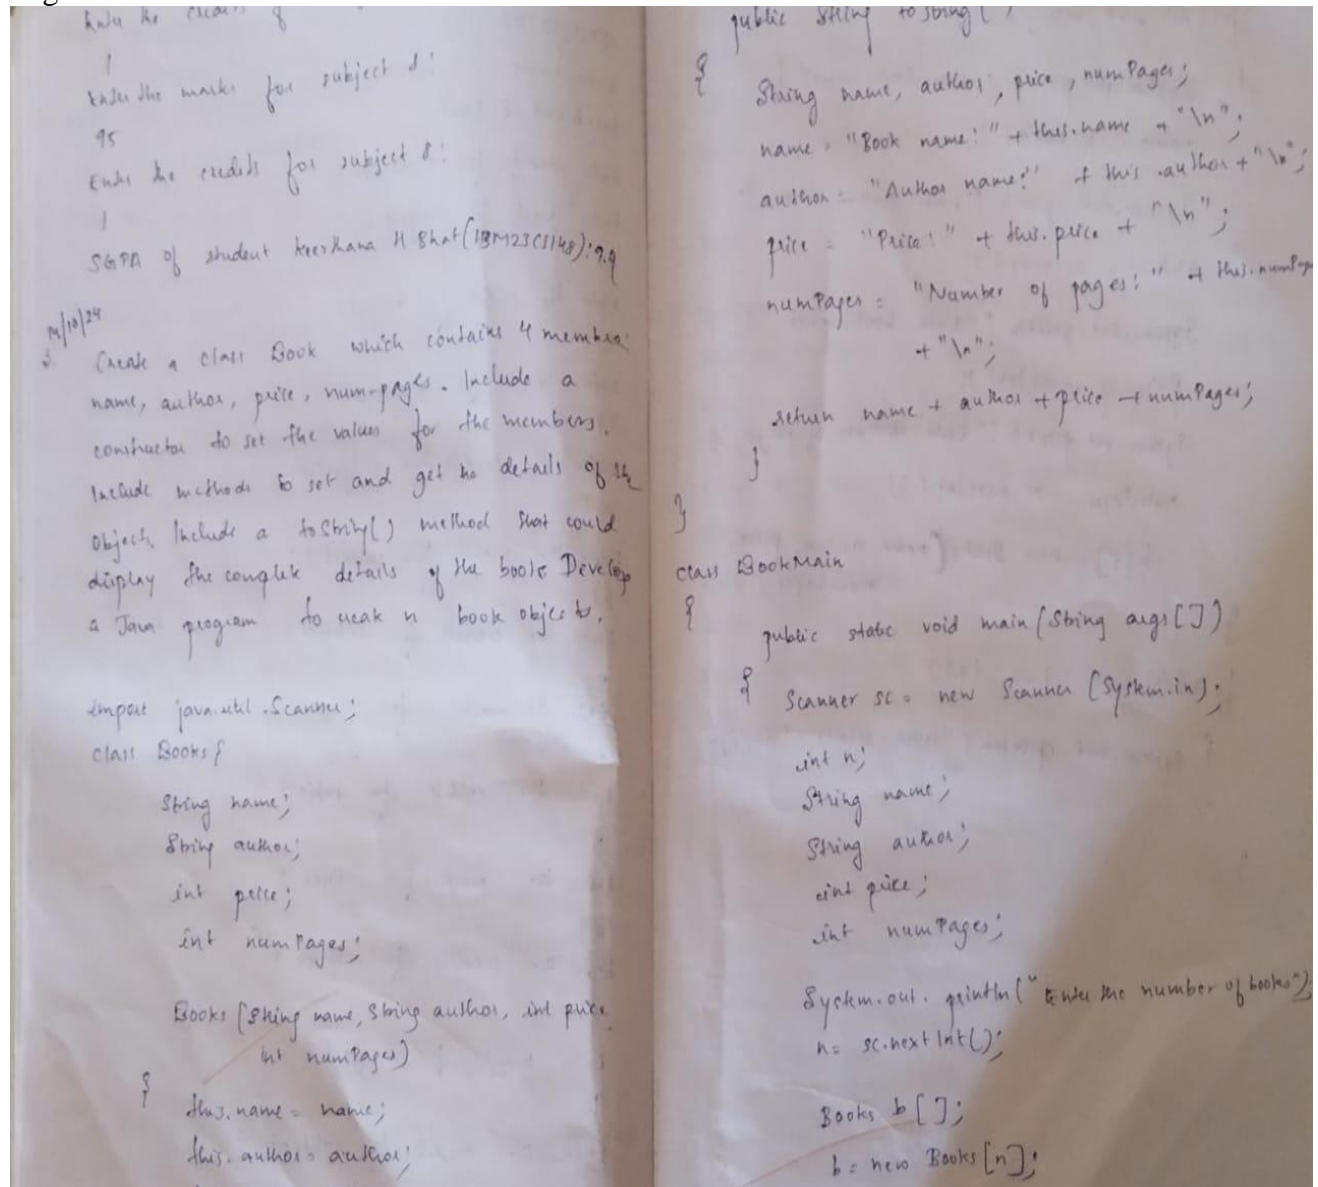 Enter the credits for
1
Enter the marks for subject 8:
95
Enter the credits for subject 8:
1
SGPA of student Keerthana H Bhat(1BM23CS148):9.9
14/10/24
Create a class Book which contains 4 members
name, author, price, num-pages. Include a
constructor to set the values for the members.
Include methods to set and get the details of the
objects. Include a toString() method that could
display the complete details of the book. Develop
a Java program to create n book objects.
import java.util.Scanner;
class Books{
String name;
String author;
int price;
int numPages;
Books (String name, String author, int price,
int numPages)
{
this.name = name;
this.author = author;
public String toString()
{
String name, author, price, numPages;
name = "Book name:" + this.name + "\n";
author = "Author name:" + this.author + "\n";
price = "Price:" + this.price + "\n";
numPages = "Number of pages:" + this.numPages
+ "\n";
return name + author + price + numPages;
}
}
class BookMain
{
public static void main(String args[])
{ Scanner sc = new Scanner (System.in);
int n;
String name;
String author;
int price;
int numPages;
System.out.println("Enter the number of books");
n= sc.nextInt();
Books b[];
b = new Books[n];